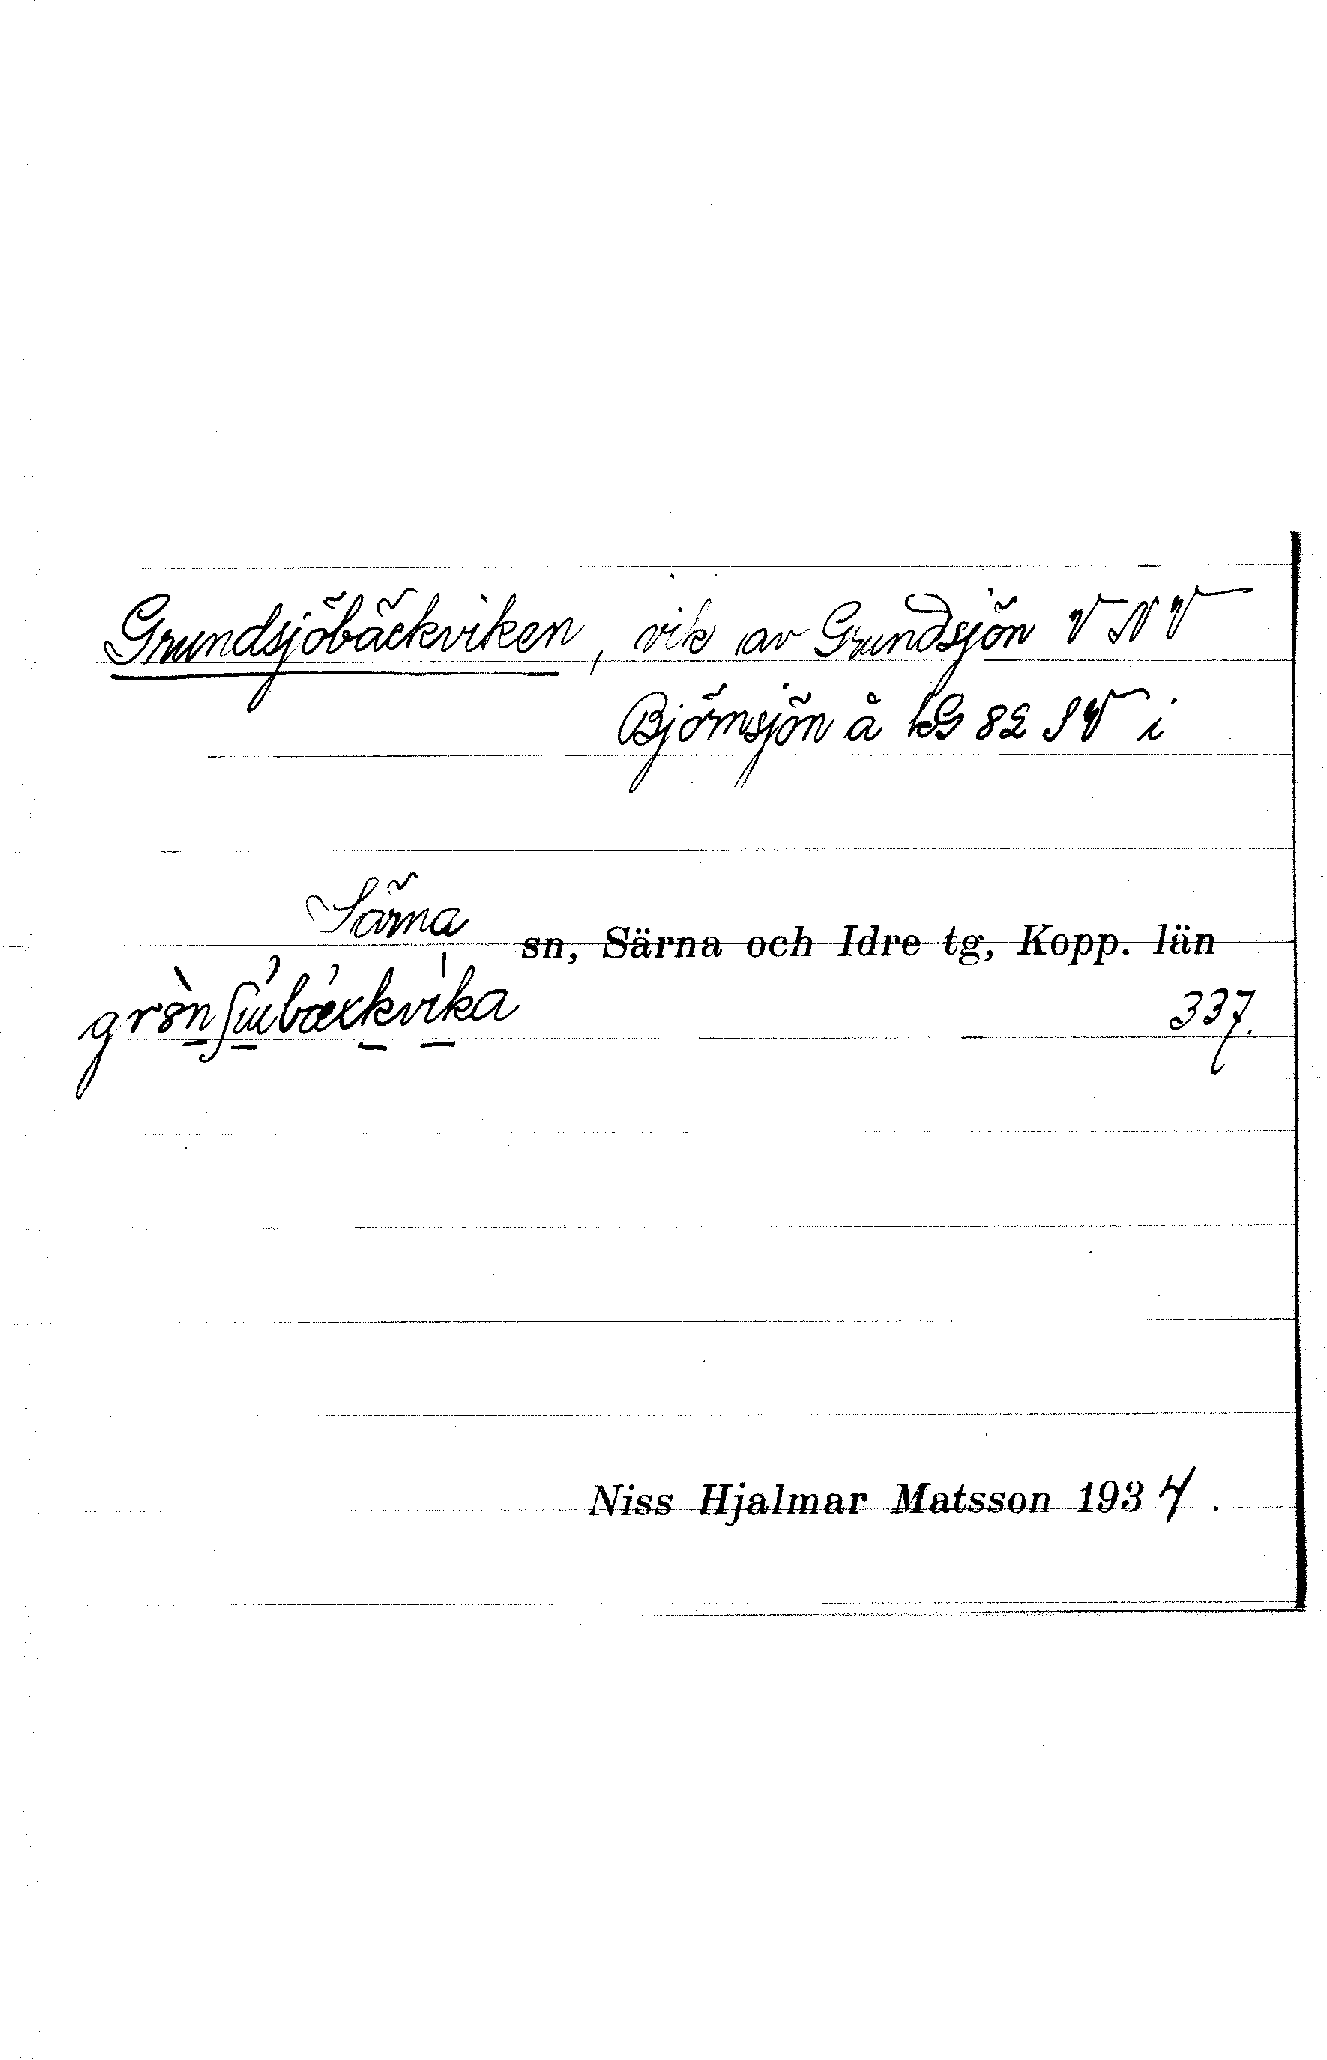 Grundsjöbäckviken, vik av Grundsjön VNV
Björnsjön å GS 82 SV i
Särna sn, Särna och Idre tg, Kopp. län
337.
Niss Hjalmar Matsson 1934.